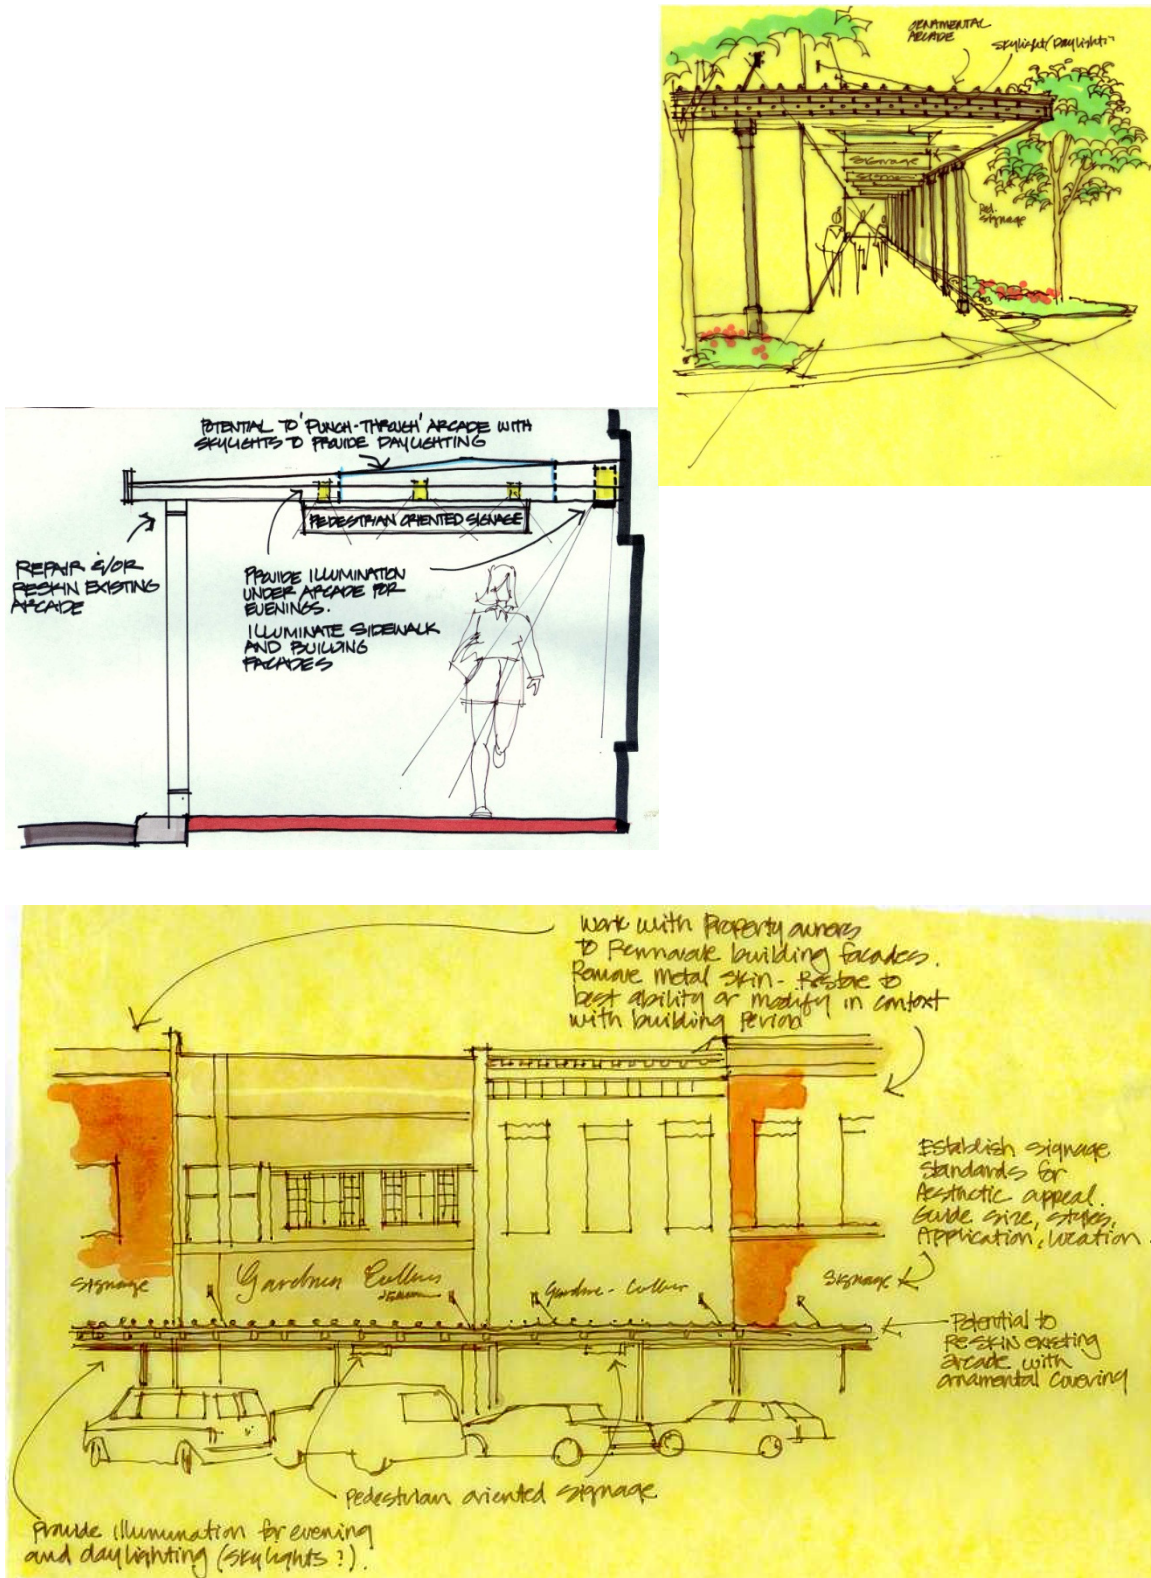 ORNAMENTAL
ARCADE
Skylight/Daylight
Signage
Ped.
Signage
POTENTIAL TO 'PUNCH-THROUGH' ARCADE WITH
SKYLIGHTS TO PROVIDE DAYLIGHTING
PEDESTRIAN ORIENTED SIGNAGE
REPAIR &/OR
RESKIN EXISTING
ARCADE
PROVIDE ILLUMINATION
UNDER ARCADE FOR
EVENINGS.
ILLUMINATE SIDEWALK
AND BUILDING
FACADES
Work with Property owners
to Rennovate building facades.
Remove metal skin - Restore to
best ability or modify in context
with building Period
Establish signage
standards for
Aesthetic appeal.
Guide size, styles,
Application, location.
Signage
Gardner Cullen
Gardner - Cullen
Signage
Potential to
RE-SKIN existing
arcade with
ornamental covering
Pedestrian oriented signage
Provide illumination for evening
and daylighting (skylights?).